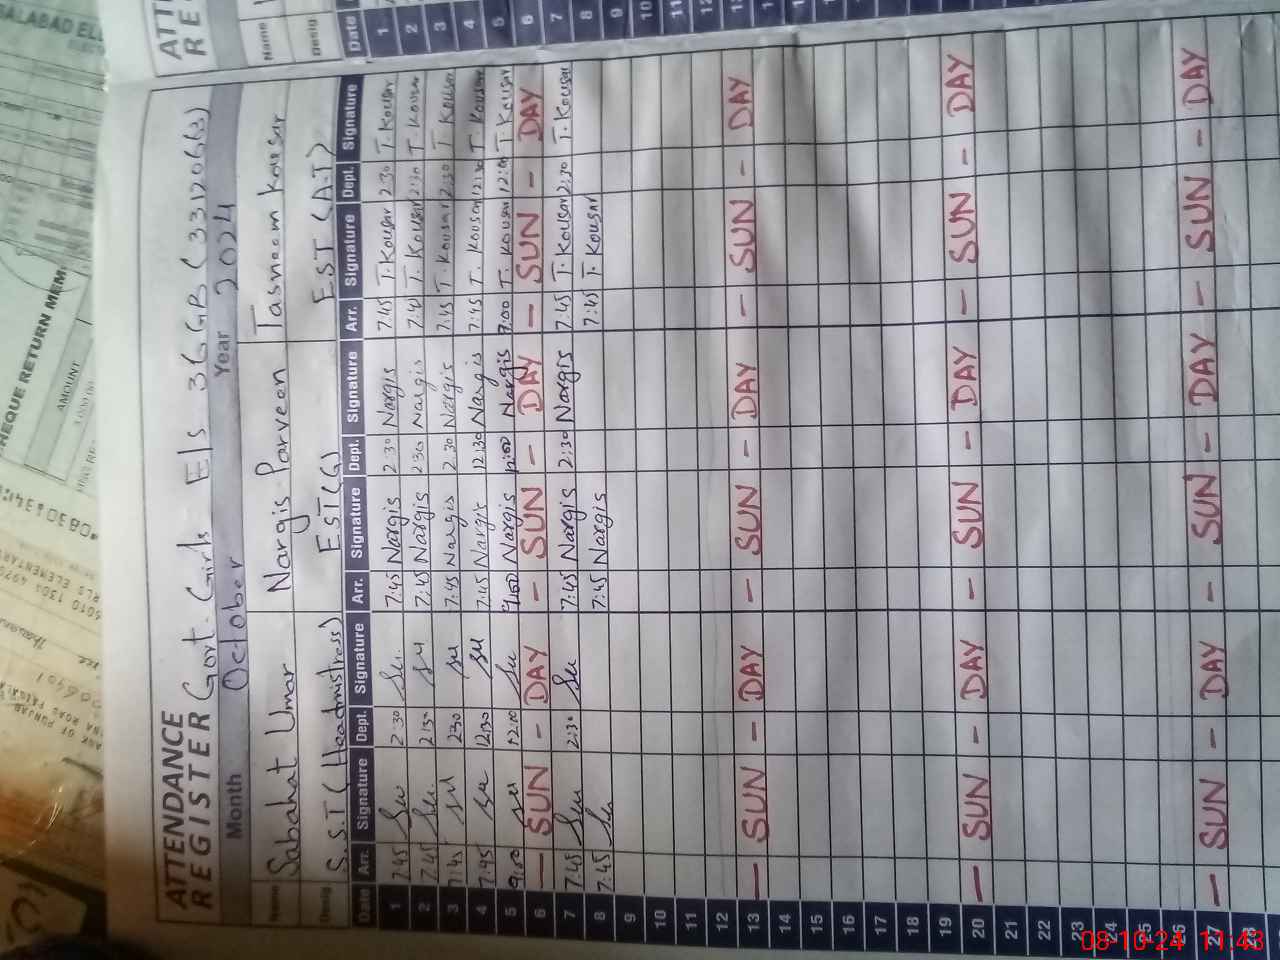 ATTENDANCE
REGISTER Govt. Girls E/S 36 GB (33120663)
Month October Year 2024
Name Sabahat Umar Nargis Parveen Tasneem Kousar
Desig S.S.T (Headmistress) EST (G) EST (A.I)
Date Arr. Signature Dept. Signature Arr. Signature Dept. Signature Arr. Signature Dept. Signature
1 7:45 2:30 7:45 Nargis 2:30 Nargis 7:45 T.Kousar 2:30 T.Kousar
2 7:45 2:30 7:45 Nargis 2:30 Nargis 7:45 T.Kousar 2:30 T.Kousar
3 7:45 2:30 7:45 Nargis 2:30 Nargis 7:45 T.Kousar 2:30 T.Kousar
4 7:45 12:30 7:45 Nargis 12:30 Nargis 7:45 T.Kousar 12:30 T.Kousar
5 9:00 12:00 Nargis 12:00 Nargis T.Kousar 12:00 T.Kousar
6 — SUN - DAY — SUN - DAY — SUN - DAY
7 7:45 2:30 7:45 Nargis 2:30 Nargis 7:45 T.Kousar 2:30 T.Kousar
8 7:45 7:45 Nargis 7:45 T.Kousar
9
10
11
12
13 — SUN - DAY — SUN - DAY — SUN - DAY
14
15
16
17
18
19
20 — SUN - DAY — SUN - DAY — SUN - DAY
21
22
23
24
25
26
27 — SUN - DAY — SUN - DAY — SUN - DAY
28
Name
Desig
Date
1
2
3
4
5
6
7
8
9
10
11
12
CHEQUE RETURN MEM
AMOUNT
08-10-24 11:43